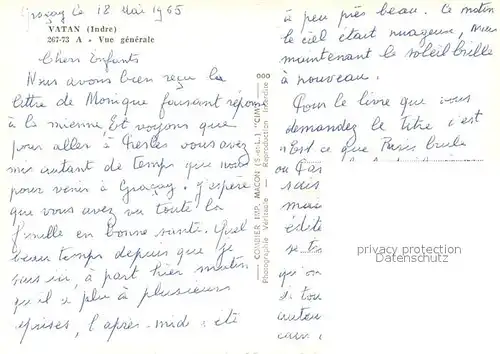 Graçay le 18 Mai 1965
VATAN (Indre)
267-73 A - Vue générale
Chers Enfants
Nous avons bien reçu la
lettre de Monique faisant réponse
à la mienne, Et voyons que
pour aller à Presles vous avez
mis autant de temps que nous
pour venir à Graçay. j'espère
que vous avez vu toute la
famille en bonne santé. Quel
beau temps depuis que je
suis ici, à part hier matin
qu'il a plu à plusieurs
reprises, l'après-midi été
COMBIER IMP. MACON (S.-et-L.) "CIM"
Photographie Véritable - Reproduction Interdite
à peu près beau. Ce matin
le ciel était nuageux, mais
maintenant le soleil brille
à nouveau.
Pour le livre que vous
demandez le titre c'est
"Est ce que Paris brule
ou
sais
mais
édite
se
qu'on
si tou
autou
car
privacy protection
Datenschutz